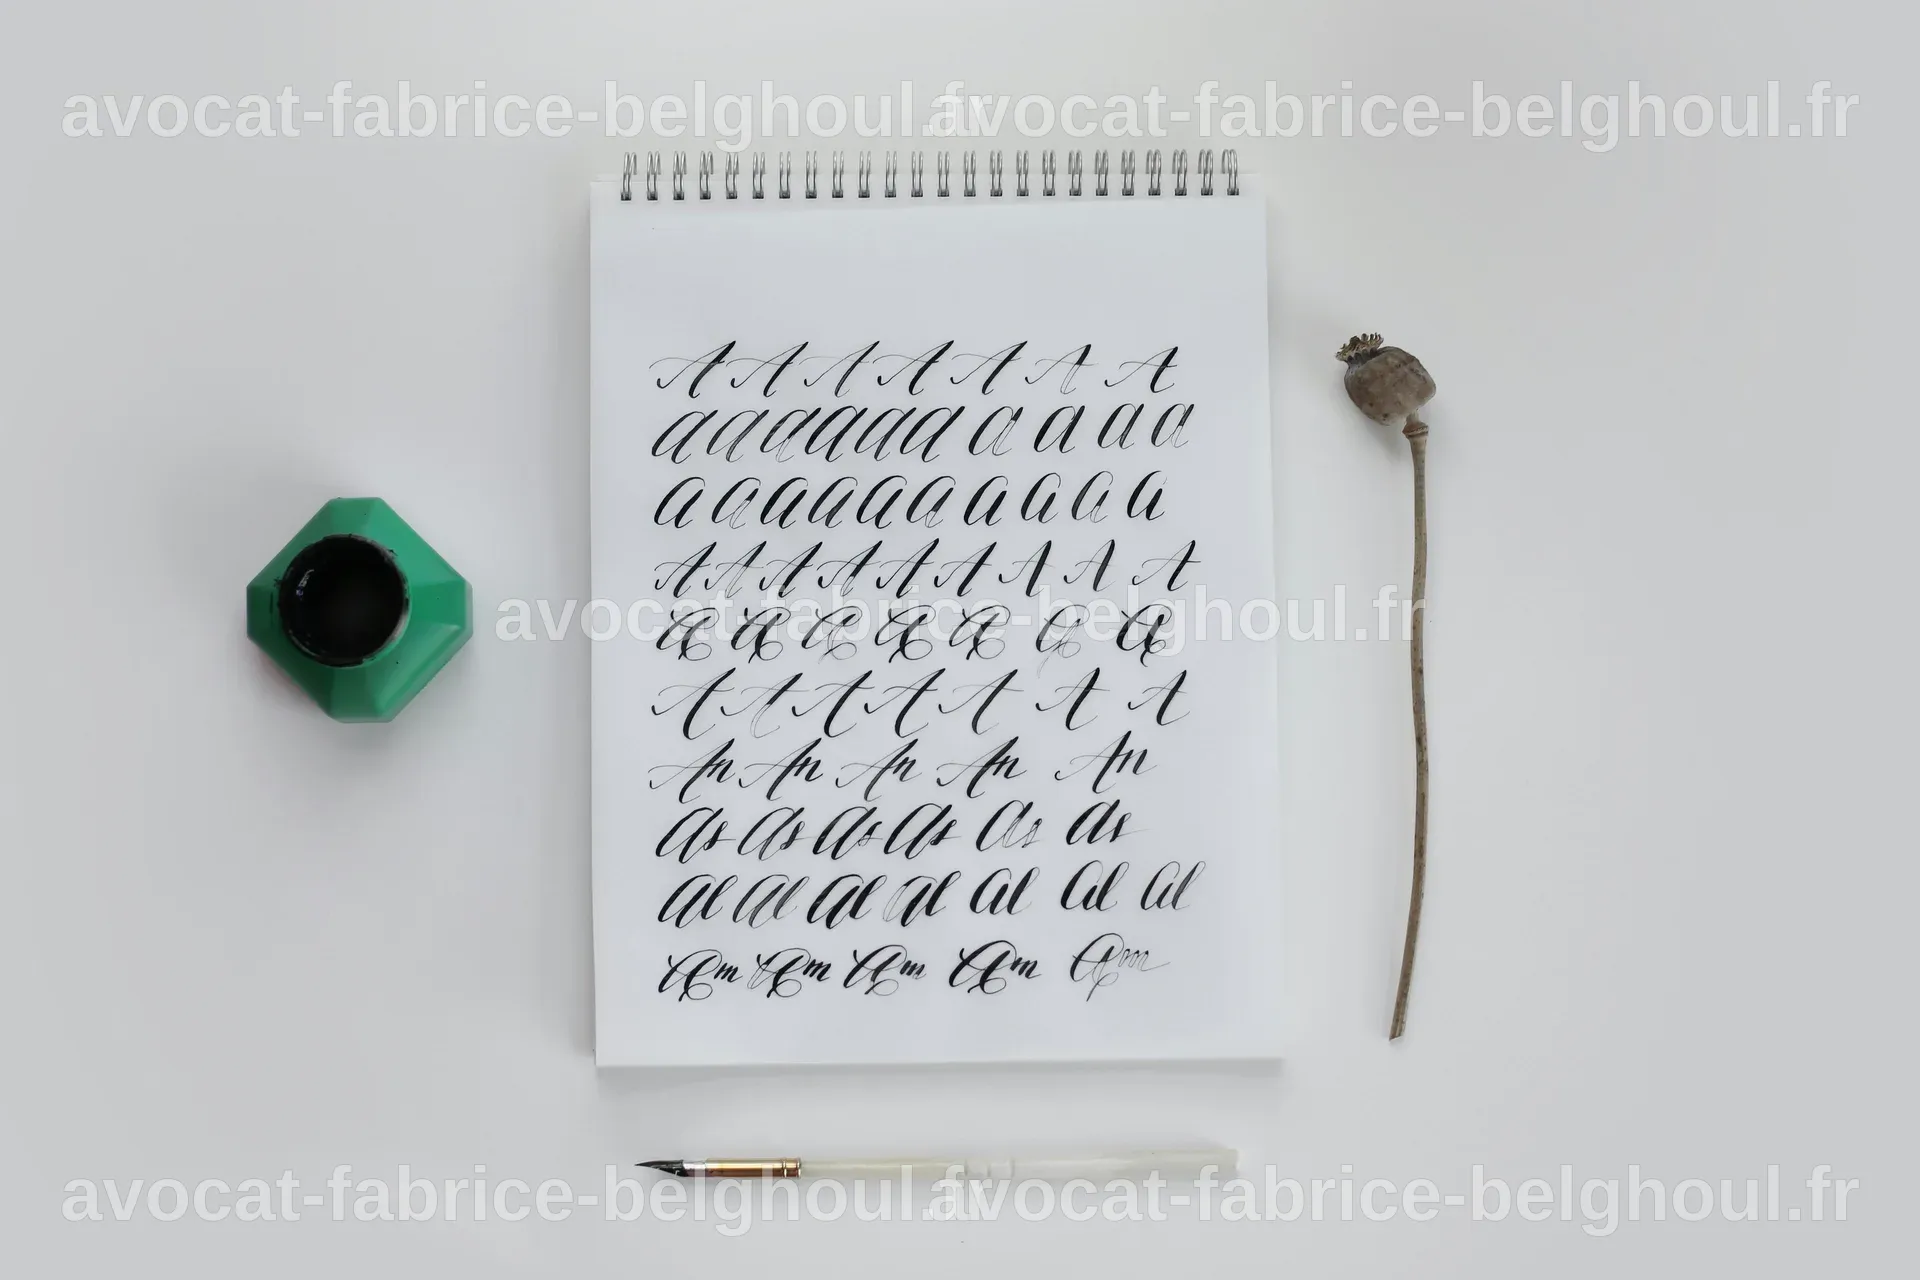 avocat-fabrice-belghoul.fr avocat-fabrice-belghoul.fr
A A A A A A A
a a a a a a a a a a
a a a a a a a a a a
A A A A A A A A A
avocat-fabrice-belghoul.fr
A A A A A A A
A A A A A A A
An An An An An
as as as as as as
al al al al al al al
Am Am Am Am Am
avocat-fabrice-belghoul.fr avocat-fabrice-belghoul.fr